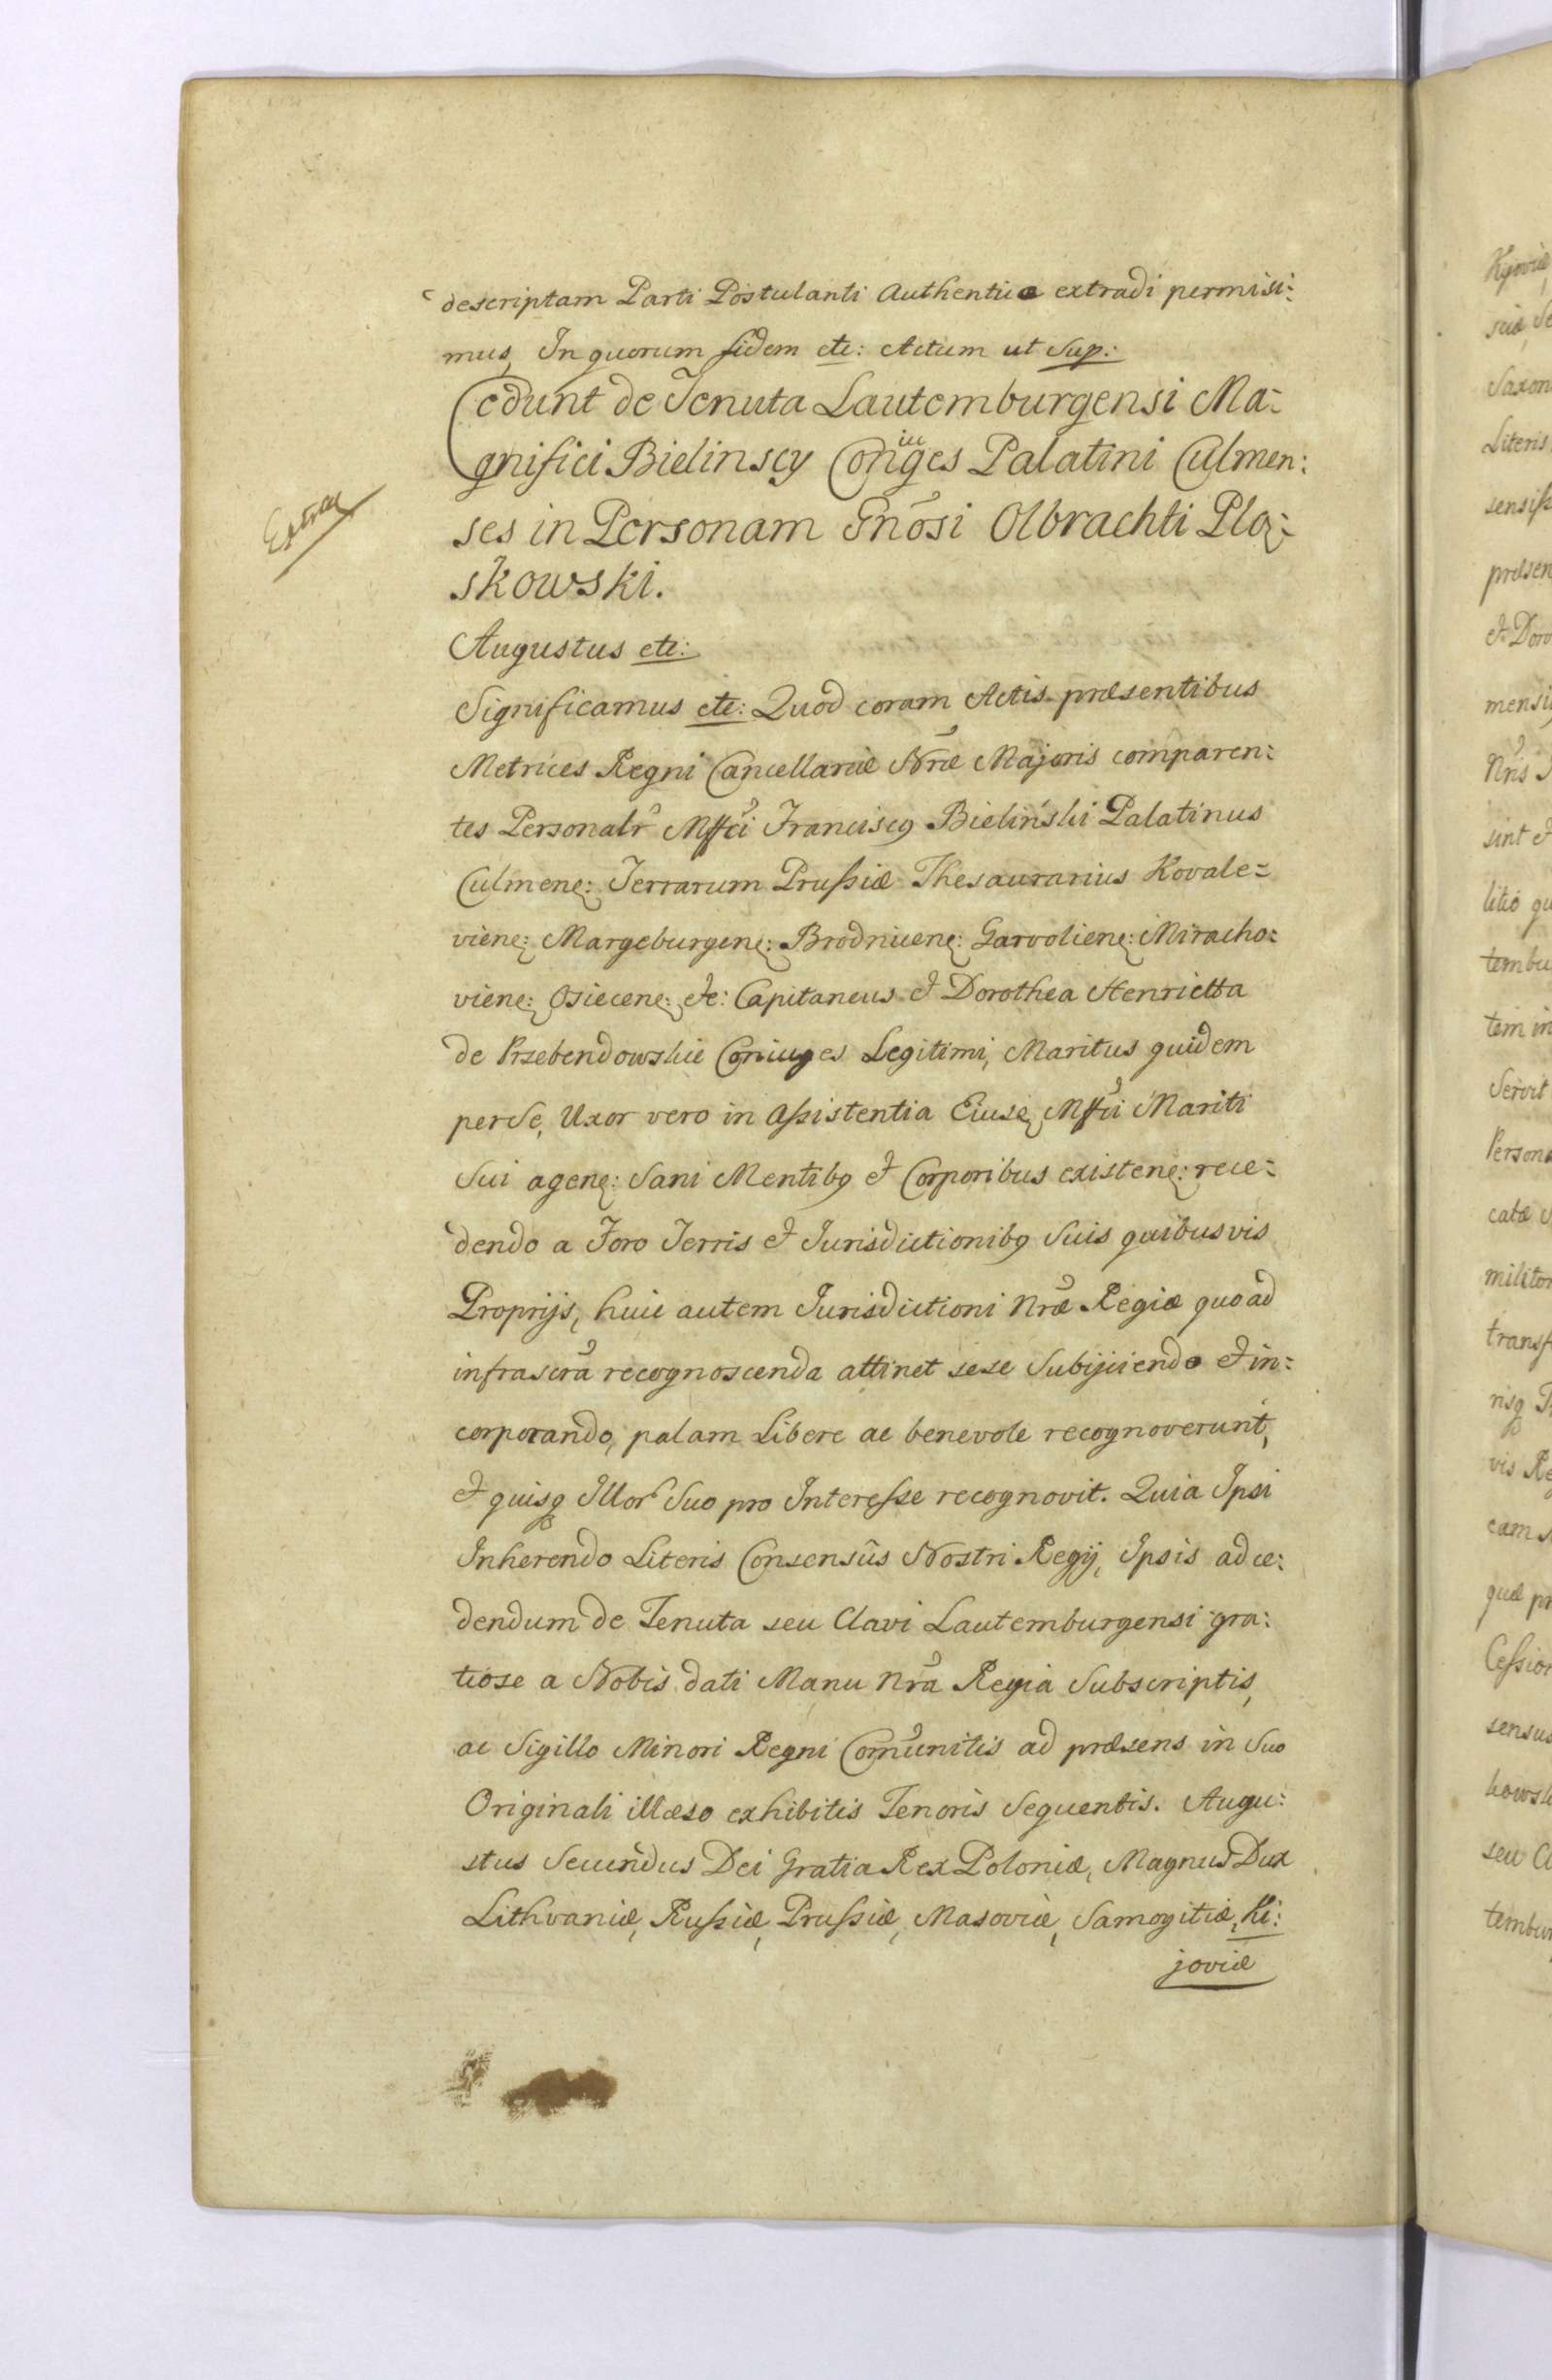 descriptam Parti Postulanti Authentice extradi permisi:
mus, In quorum fidem etc: Actum ut Sup:
Cedunt de Tenuta Lautemburgensi Ma-
gnifici Bielinscy Coniuges Palatini Culmen:
ses in Personam Gnosi Olbrachti Plo-
skowski.
Extrac
Augustus etc:
Significamus etc: Quod coram Actis præsentibus
Metrices Regni Cancellariæ Nræ Majoris comparen:
tes Personalr Mffci Franciscq Bieliński Palatinus
Culmenę: Terrarum Prussiæ Thesaurarius Kovale=
vienę: Margeburgenę: Brodnicenę: Garvolienę: Miracho:
vienę: Osiecenę: etc: Capitaneus et Dorothea Henrietta
de Przebendowskie Coniuges Legitimi, Maritus quidem
per se, Uxor vero in Assistentia Eiusę Mffci Mariti
Sui agenę: Sani Mentibq et Corporibus existenę: rece-
dendo a Foro Terris et Jurisdictionibq Suis quibusvis
Proprijs, huic autem Jurisdictioni Nræ Regiæ quoad
infrascra recognoscenda attinet sese Subijciendo et in:
corporando, palam Libere ac benevole recognoverunt,
et quisq Illor Suo pro Interesse recognovit. Quia Ipsi
Inherendo Literis Consensûs Nostri Regij, Ipsis ad ce:
dendum de Tenuta seu Clavi Lautemburgensi gra:
tiose a Nobis dati Manu Nra Regia Subscriptis,
ac Sigillo Minori Regni Comunitis ad præsens in Suo
Originali illæso exhibitis Tenoris Sequentis. Augu:
stus Secundus Dei Gratia Rex Poloniæ, Magnus Dux
Lithvaniæ, Russiæ, Prussiæ, Masoviæ, Samogitiæ, Ki:
joviæ